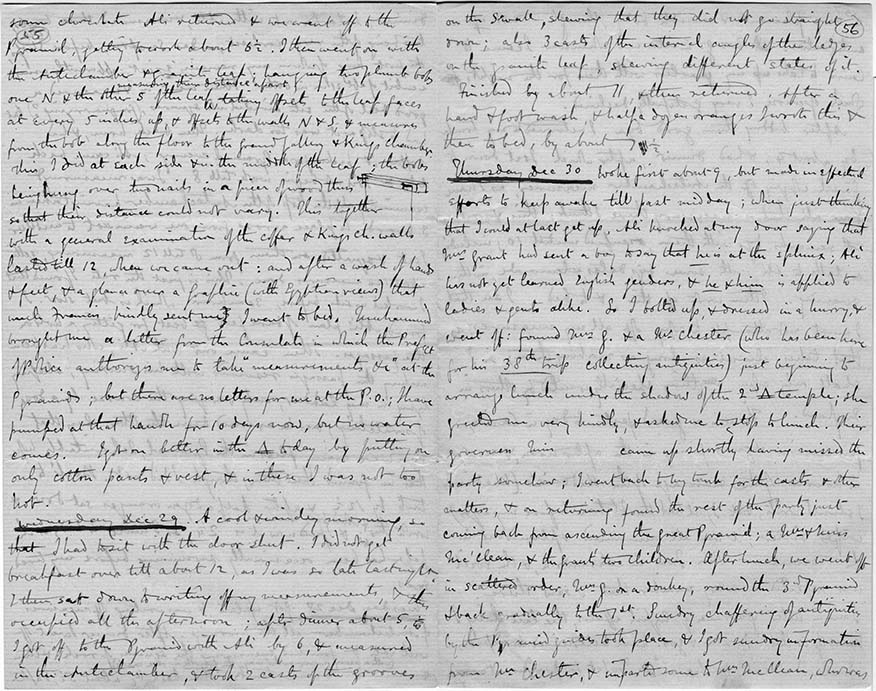 55
some chocolate. Ali returned & we went off to the
Pyramid, getting to work about 6½. I then went on with
the Antechamber & granite leaf; hanging two plumb bobs
measuring their distance apart
one N & the other S of the leaf, taking offsets to the leaf faces
at every 5 inches up, & offsets to the walls N & S, & measures
from the bob along the floor to the grand gallery & Kings chamber.
This I did at each side & in the middle of the leaf; the bobs
hanging over two nails in a piece of wood thus
so that their distance could not vary. This together
with a general examination of the coffer & Kings ch. walls
lasted till 12, when we came out: and after a wash of hands
& feet, & a glance over a Graphic (with Egyptian views) that
much Frances kindly sent me, I went to bed. Muhammed
brought me a letter from the Consulate in which the Prefect
of Police authorizes me to take "measurements, &c" at the
Pyramids; but there are no letters for me at the P.O.; I have
pumped at that handle for 10 days now, but no water
comes. I got on better in the Δ today by putting on
only cotton pants & vest, & in these I was not too
hot.
Wednesday Dec 29 A cool & windy morning, so
that I had to sit with the door shut. I did not get
breakfast over till about 12, as I was so late last night
I then sat down to writing off my measurements, & this
occupied all the afternoon; after dinner about 5,
I got off to the Pyramid with Ali by 6, & measured
in the Antechamber, & took 2 casts of the grooves
56
on the S. wall, shewing that they did not go straight
down; also 3 casts of the internal angles of the ledges
on the granite leaf, shewing different states of it.
Finished by about 11, & then returned, after a
hand & foot wash & half a dozen oranges I wrote this &
then to bed, by about
Thursday Dec 30 Woke first about 9, but made ineffectual
efforts to keep awake till past mid day; when just thinking
that I would at last get up, Ali knocked at my door saying that
Mrs Grant had sent a boy to say that he is at the sphinx; Ali
has not yet learned English genders, & he & him is applied to
ladies & gents alike. So I bolted up, & dressed in a hurry, &
went off: found Mrs G. & a Mr Chester (who has been here
for his 38th trip collecting antiquities) just beginning to
arrange lunch under the shadow of the 2nd Δ temple; she
greeted me very kindly, & asked me to stop to lunch. Their
governess Miss came up shortly having missed the
party somehow; I went back to my tomb for the casts & other
matters, & on returning found the rest of the party just
coming back from ascending the great Pyramid; a Mrs & Miss
McClean, & the Grants' two children. After lunch, we went off
in scattered order, Mrs G. on a donkey, round the 3rd Pyramid
& back gradually to the 1st. Sundry chaffering of antiquities
by the Pyramid guides took place, & I got sundry information
from Mr Chester, & imparted some to Mrs McClean, who was